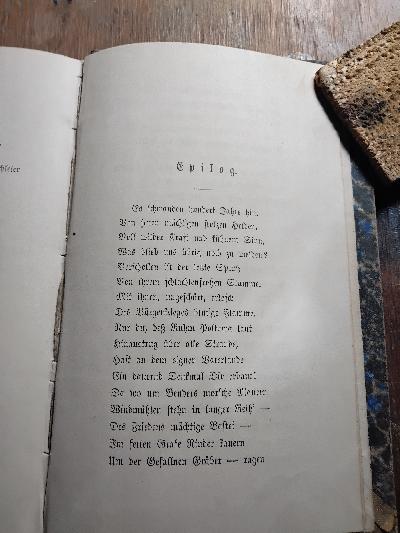 schleier
Epilog.
Es schwanden hundert Jahre hin.
Von jenen mächtigen stolzen Helden,
Voll wilder Kraft und kühnem Sinn,
Was blieb uns übrig, noch zu melden?
Verschollen ist der letzte Sproß
Von ihrem schlachtenfrohen Stamme,
Mit ihnen, ungeschürt, erlosch
Des Bürgerkrieges blutige Flamme.
Nur du, deß Ruhm Poltawa laut
Hinaustrug über alle Lande,
Hast an dem eignen Vaterlande
Ein dauernd Denkmal Dir erbaut!
Da wo um Benders morsche Mauern
Windmühlen stehn in langer Reih' —
Des Friedens mächtige Bastei —
Im fetten Grase Rinder kauern
Um der Gefallnen Gräber — ragen